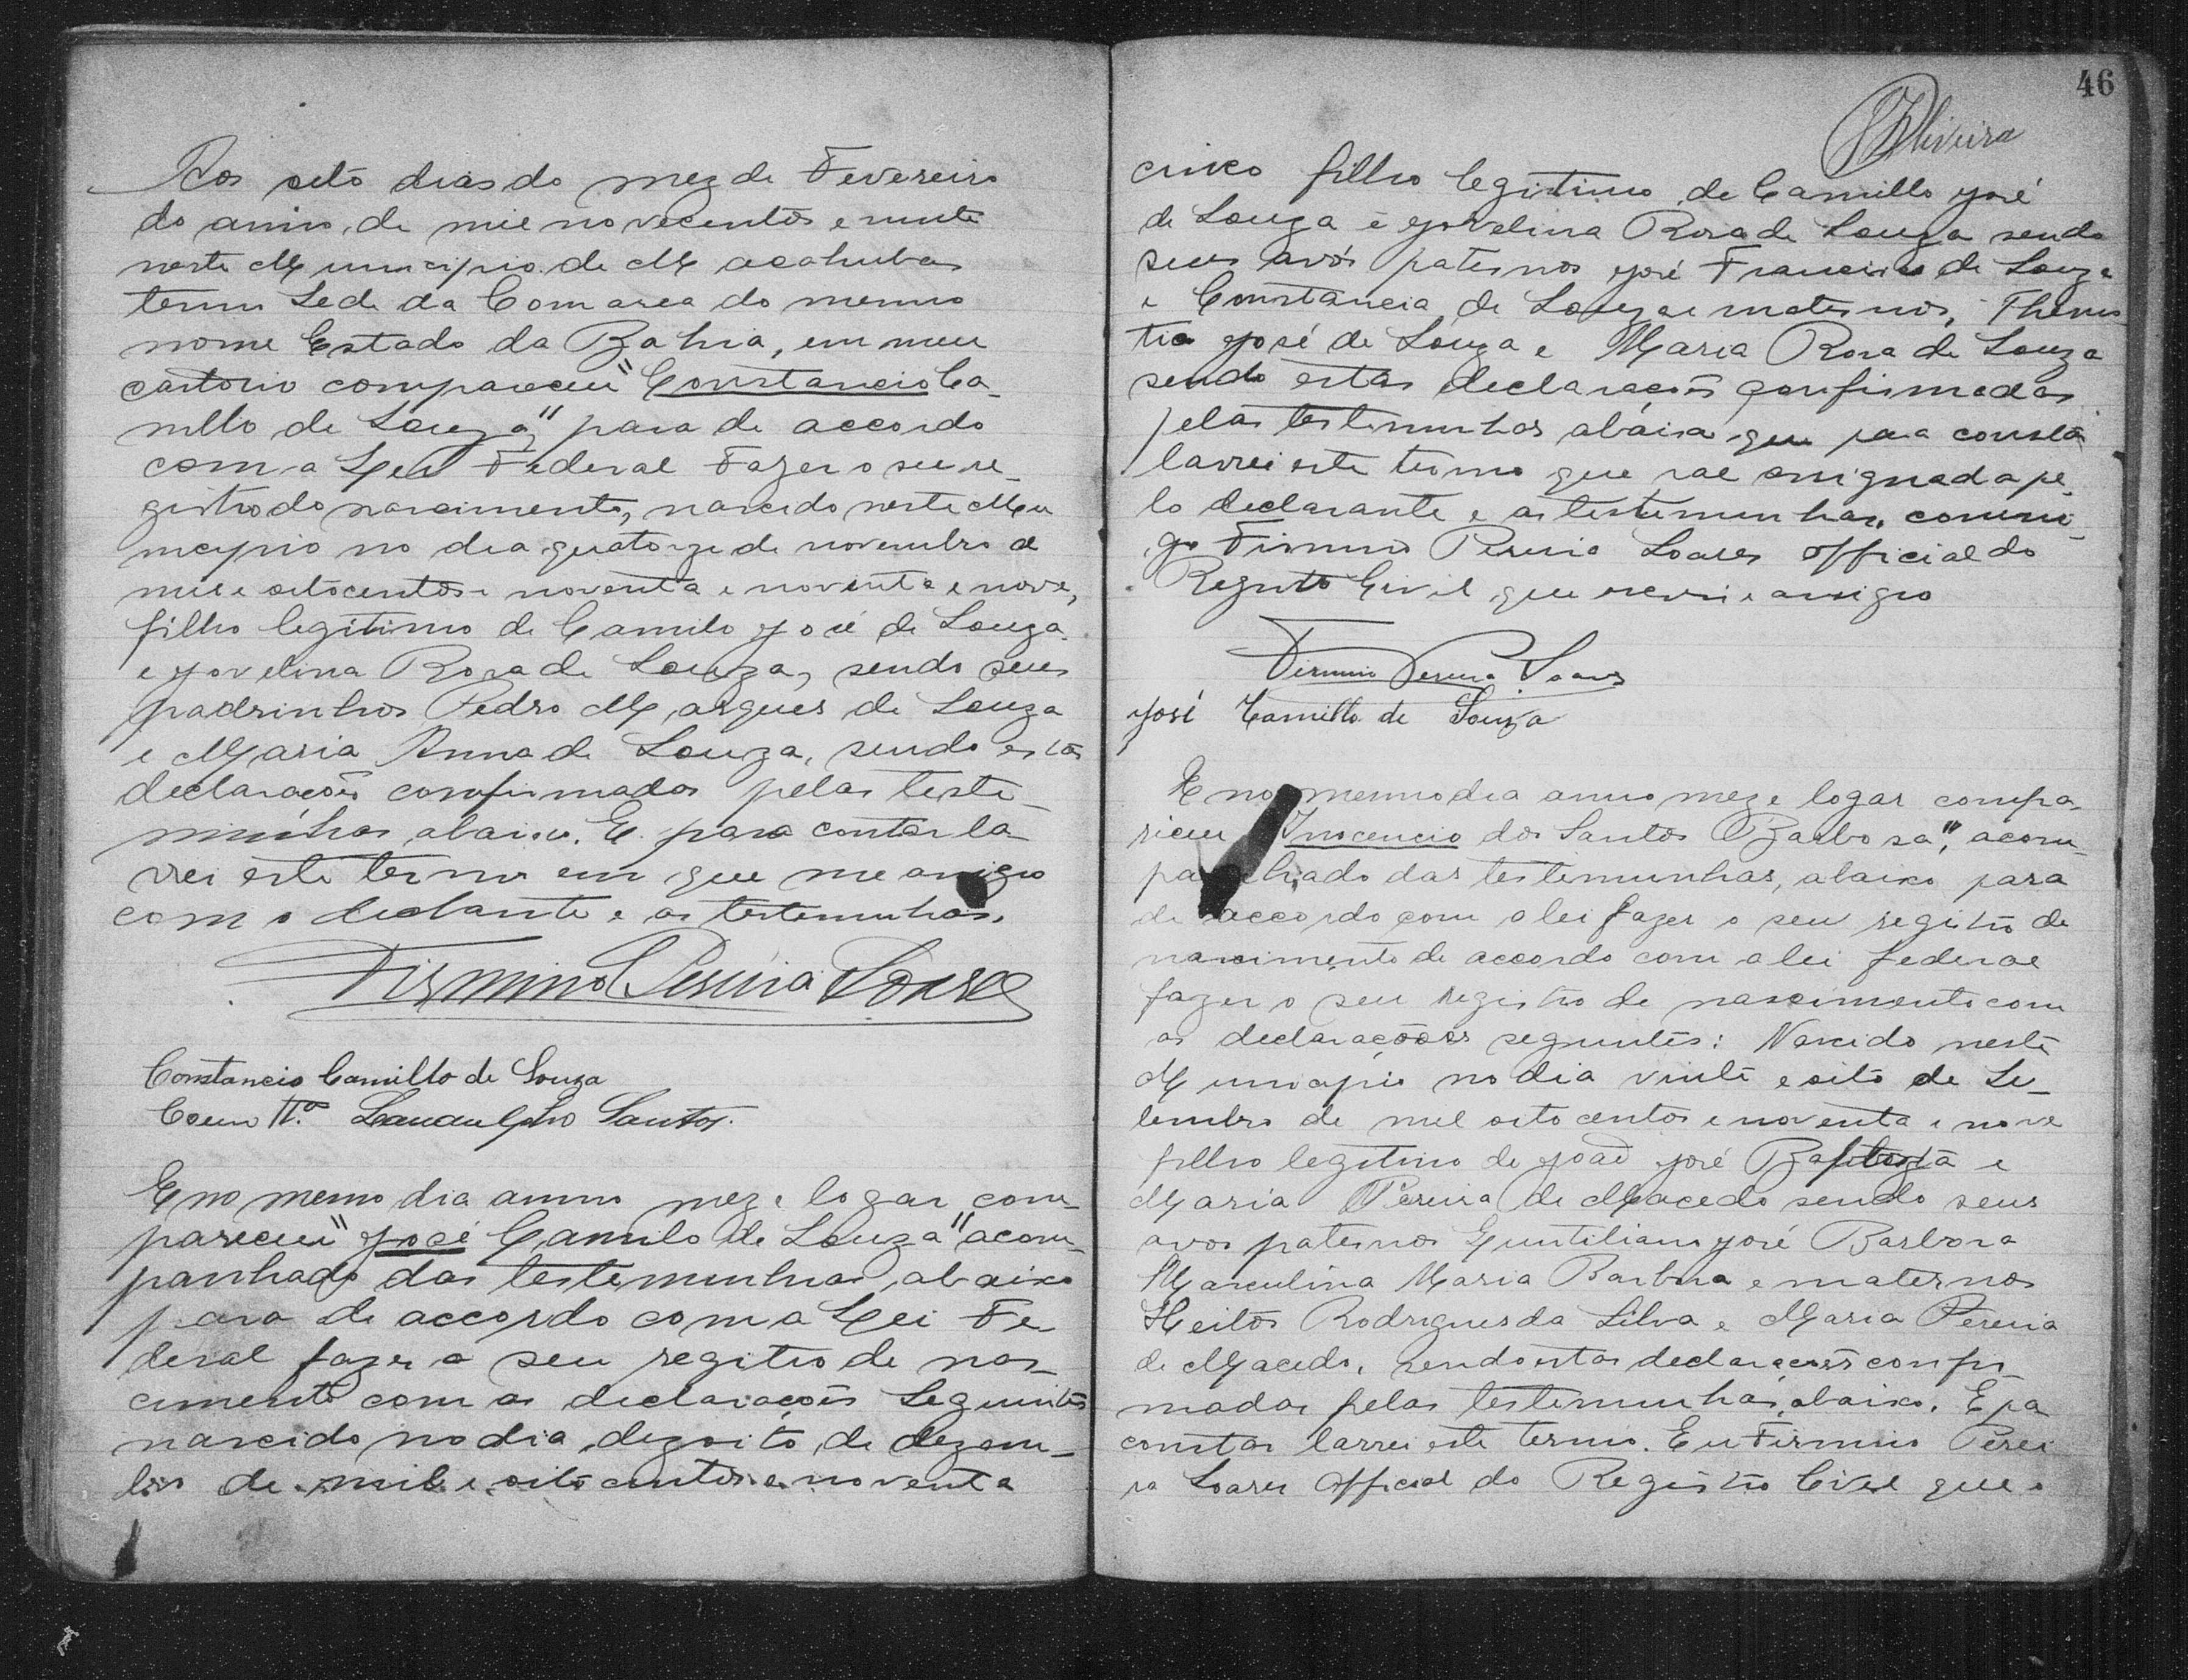 Aos oito dias do mez de Fevereiro
do anno de mil novecentos e vinte
neste Municipio de Macahubas
termo Sede da Comarca do mesmo
nome Estado da Bahia, em meu
cartorio compareceu "Constancio Ca-
millo de Souza" para de accordo
com a Lei Federal Fazer o seu re-
gistro do nascimento, nascido neste Mu
nicipio no dia quatorze de novembro de
mil e oitocentos e noventa e noventa e nove,
filho legitimo de Camilo José de Souza
e Jovelina Rosa de Souza, sendo seus
padrinhos Pedro Marques de Souza
e Maria Anna de Souza, sendo estas
declarações confirmadas pelas teste-
munhas abaixo. E para contar la-
vrei este termo em que me assigno
com o declante e as testemunhas.
Firmino Pereira Soares
Constancio Camillo de Souza
Como Tª Santos.
E no mesmo dia anno mez e logar com-
pareceu "José Camilo de Souza" acom-
panhado das testemunhas abaixo
para de accordo com a Lei Fe-
deral fazer o seu registro de nas-
cimento com as declarações Seguintes
nascido no dia dezoito de dezem-
bro de mil e oito centos e noventa
46
Oliveira
cinco filho legitimo de Camillo José
de Souza e Jovelina Rosa de Souza sendo
seus avós paternos José Francisco de Souza
e Constancia de Souza e maternos,
José de Souza e Maria Rosa de Souza
sendo estas declarações confirmadas
pelas testemunhas abaixo que para constar
lavrei este termo que vae assignada pe-
lo declarante e as testemunhas, commi-
go Firmino Pereira Soares official do
Registro Civil que escrevi e assigno
Firmino Pereira Soares
José Camillo de Souza
E no mesmo dia anno mez e logar compa-
receu "Inocencio dos Santos Barbosa", acom-
panhado das testemunhas, abaixo para
de accordo com a lei fazer o seu registro de
nascimento de accordo com a lei federal
fazer o seu registro de nascimento com
as declarações seguintes: Nascido neste
Municipio no dia vinte e oito de Se-
tembro de mil oito centos e noventa e nove
filho legitimo de João José Baptista e
Maria Pereira de Macedo sendo seus
avos paternos José Barbosa
Marculina Maria Barbosa e maternos
Heitor Rodrigues da Silva e Maria Pereira
de Macedo, sendo estas declarações confir
madas pelas testemunhas abaixo. E pa
constar lavrei este termo. Eu Firmino Perei
ra Soares Official do Registro Civil que o